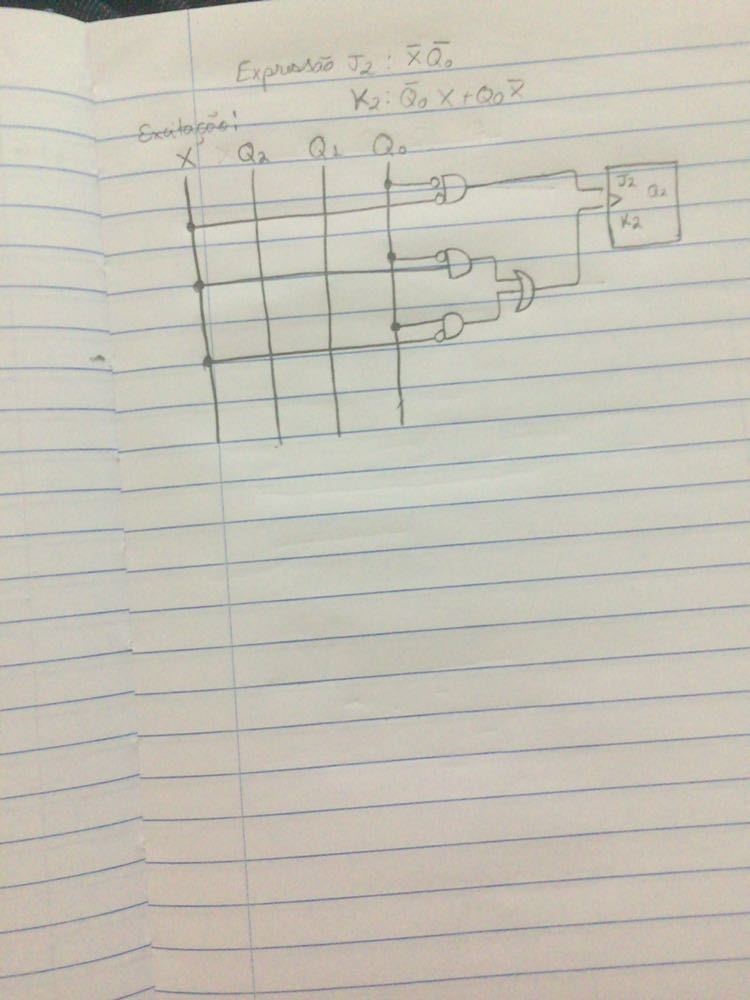 Expressão J₂: X̄ Q̄₀
K₂: Q̄₀ X + Q₀ X̄
Excitação:
X Q₂ Q₁ Q₀
J₂ Q₂
K₂